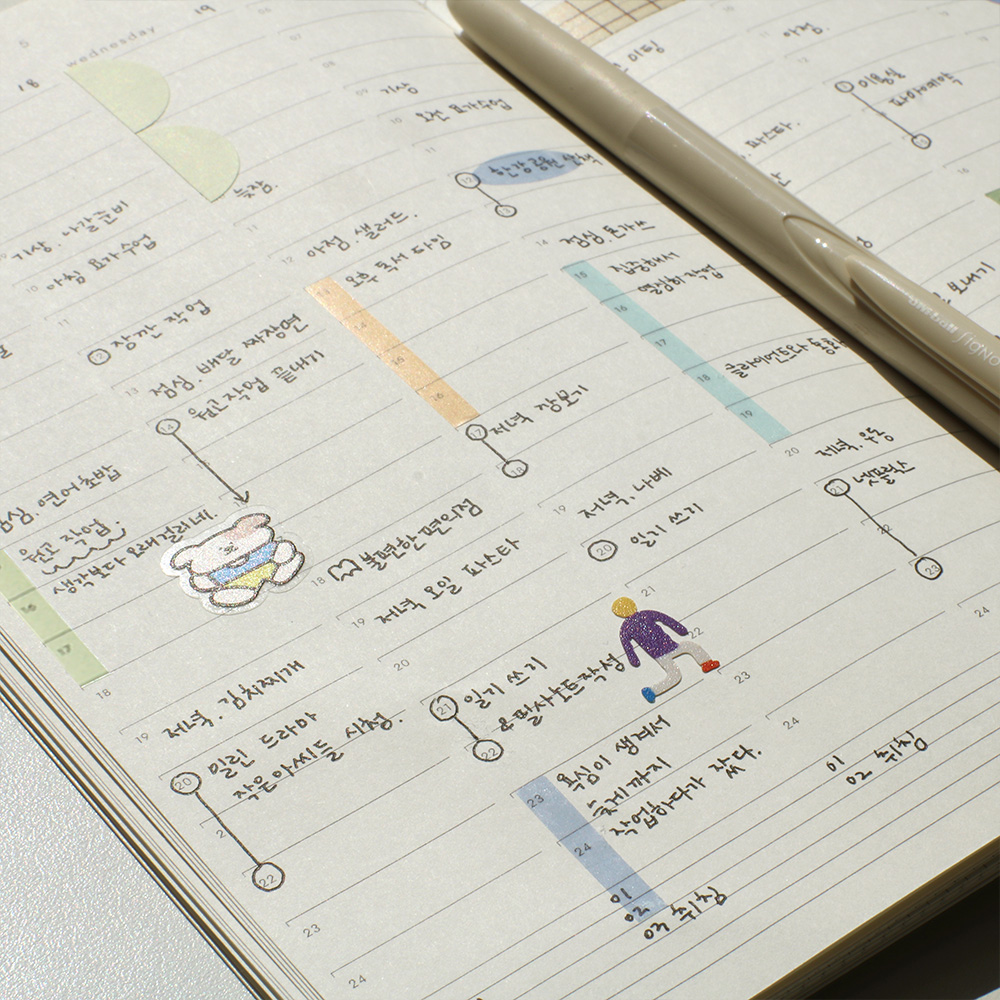 18
기상. 나갈준비
아침 요가수업
점심. 연어초밥
원고 작업.
생각보다 오래걸리네.
16
17
18
wednesday
19
늦잠.
10
11
12
장깐 작업
13
점심. 배달 짜장면
14
원고작업 끝내기
19
저녁. 김치찌개
20
밀린 드라마
작은아씨들 시청.
22
23
24
12
아점. 샐러드.
오후 독서 타임
14
16
17
저녁 장보기
18
18
불편한 편의점
19
저녁 오일 파스타
20
21
일기 쓰기
&필사노트작성
22
23
욕심이 생겨서
늦게까지
24
작업하다가 잤다.
01
02
03 취침
09
기상
10
오전 요가수업
11
12
한강공원 산책
14
점심. 돈가쓰
15
집중해서
열심히 작업
16
17
18
19
19
저녁. 나베
20
일기 쓰기
21
22
23
24
01
02 취침
미팅
파스타.
20
저녁. 우동
21
넷플릭스
22
23
24
아점.
이용실
파마예약
보내기
uni-ball SIGNO